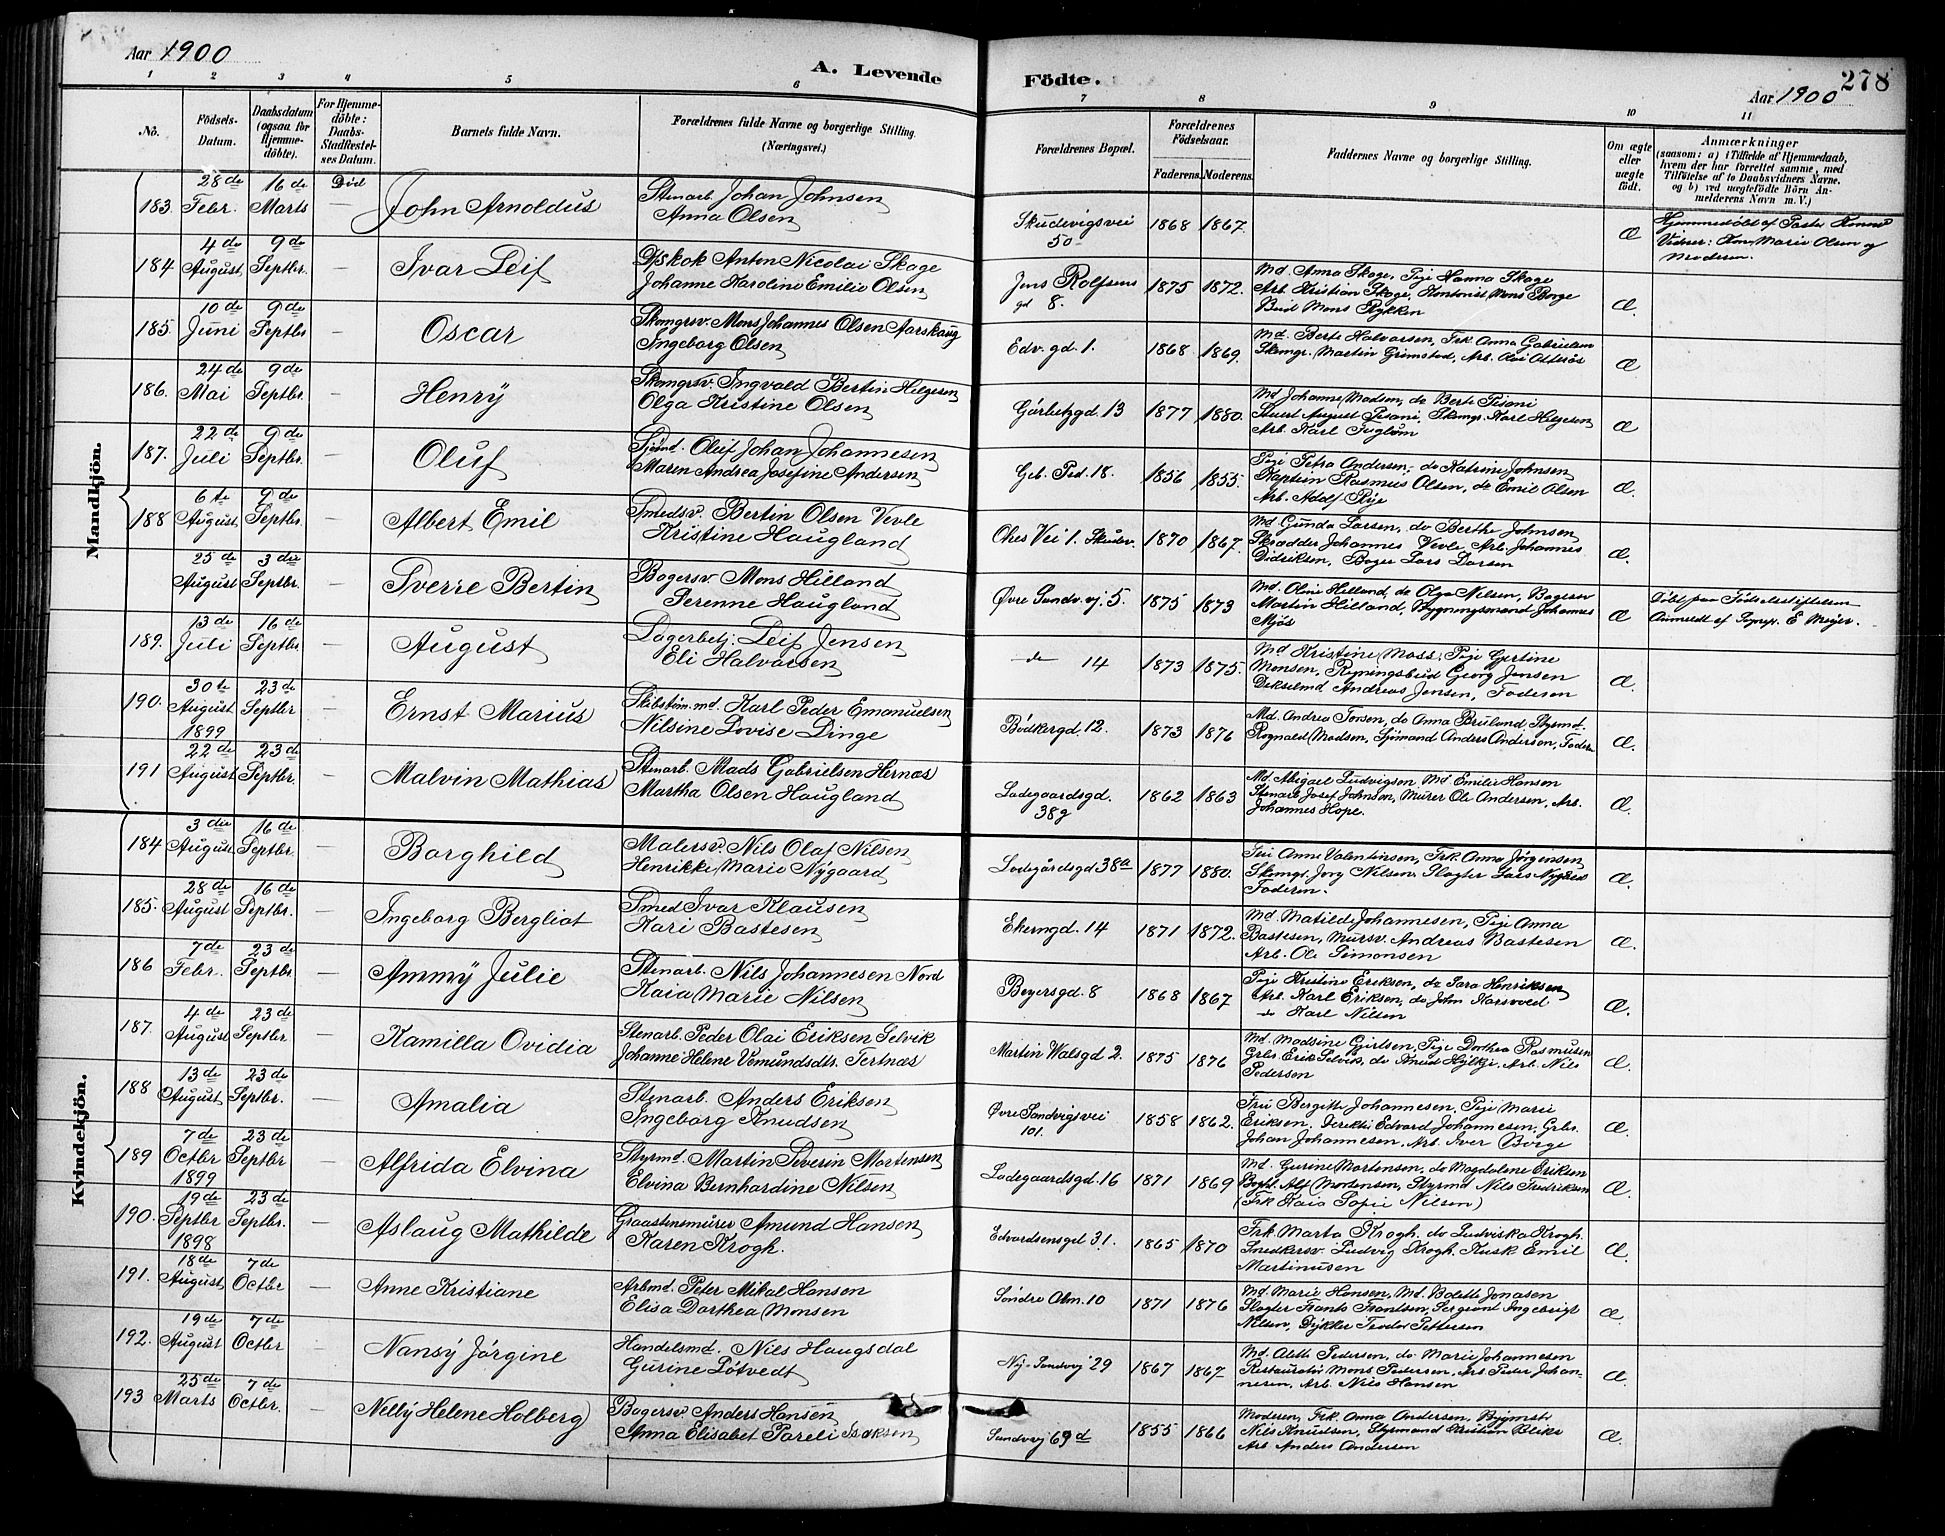 Aar 1900
A. Levende
Födte.
278
Aar 1900
1 2 3 4 5 6 7 8 9 10 11
No.
Födsels-Datum.
Daabsdatum (ogsaa for Hjemmedöbte).
For Hjemmedöbte: Daabs-Stadfæstelses Datum.
Barnets fulde Navn.
Forældrenes fulde Navne og borgerlige Stilling.
(Næringsvei.)
Forældrenes Bopæl.
Forældrenes Födselsaar.
Faderens. Moderens.
Faddernes Navne og borgerlige Stilling.
Om ægte eller uægte födt.
Anmærkninger
(saasom: a) i Tilfælde af Hjemmedaab, hvem der har forrettet samme, med Tilföielse af to Daabsvidners Navne, og b) ved uægtefödte Börn Anmelderens Navn m. V.)
Mandkjön.
183. 28de Febr. 16de Marts Död John Arnoldus
Stenarb. Johan Johnsen
Anna Olsen
Skudevigsvei 50 1868 1867. Æ
Vidner: Marie Olsen og
Moderen.
184 4de August 9de Septbr. — Ivar Leif
Anton Nicolai Skage
Johanne Karoline Emilie Olsen
Jens Rolfsens gd 8. 1875 1872.
Md. Anna Skage, Pige Hanna Skage
Arb. Kristian Skage, Kontorist Mons Borge
Bud Mons Rykken
Æ.
185. 10de Juni 9de Septbr. — Oscar
Skomgrsv. Mons Johannes Olsen Aarskaug
Ingeborg Olsen
Edv. gd. 1. 1868 1869.
Md. Berte Halvorsen, Frk Anna Gabrielsen
Skomgr. Martin Grimstad, Arb.
Æ
186. 24de Mai 9de Septbr. — Henrÿ
Skomgrsv. Ingvald Bertin Helgesen
Olga Kristine Olsen
13 1877 1880.
Md Johanne Madsen, do Berte
August Skomgr. Karl Helgesen
Arb. Karl
Æ
187. 22de Juli 9de Septbr. — Oluf
Sjömd. Oluf Johan Johannesen
Maren Andrea Josefine Andersen
Geb. Ped. 18. 1856 1855.
Pige Petra Andersen, do Katrine Johnsen
Kaptein Rasmus Olsen, do Emil Olsen
Arb. Adolf
Æ.
188 6te August 9de Septbr. — Albert Emil
Smedsv. Bertin Olsen Vevle
Kristine Haugland
Vei 1. Skudev. 1870 1867.
Md Gunda Larsen, do Berthe Johnsen
Skrædder Johannes Vevle, Arb. Johannes
Didriksen, Bager Lars Larsen
Æ.
25de August 3die Septbr. — Sverre Bertin
Bagersv. Mons Hilland
Serenne Haugland
Øvre Sandv. vj. 5. 1875 1873
Md. Oline Hilland, do Olga Nilsen, Bagersv
Martin Hilland, Bygningsmand Johannes
Mjøs
Æ
Döbt paa Födselsstiftelsen
Anmeldt af E Meyer.
189. 13de Juli 16de Septbr. — August
Lagerbetj. Leif Jensen
Eli Halvorsen
do 14 1873 1875.
Md Kristine Moss, Pige Gjertine
Monsen, Regningsbud Georg Jensen
Andreas Jensen, Faderen
Æ.
190. 30te August 1899 23de Septbr — Ernst Marius
Skibstøm.md. Karl Peder Emanuelsen
Nilsine Lovise Dinge
Bödkergd. 12. 1873 1876
Md. Andrea Torsen, do Anna Styrmd.
Ragnald Madsen, Sjömand Anders Andersen,
Æ.
191 22de August 23de Septbr. — Malvin Mathias
Stenarb. Mads Gabrielsen Hernæs
Martha Olsen Haugland
Ladegaardsgd. 38g 1862 1863
Md. Abigael Ludvigsen Md Emilie Hansen
Stenarb Josef Johnsen, Murer Ole Andersen, Arb.
Johannes Hope.
Æ.
Kvindekjön.
184 3die August 16de Septbr. — Borghild
Malersv. Nils Olaf Nilsen
Henrikke Marie Nÿgaard
Ladegårdsgd 38a 1877 1880.
Anne Valentinsen, Frk. Anna Jørgensen
Skomgr. Nilsen, Slagter Lars
Faderen.
Æ.
185. 28de August 16de Septbr. — Ingeborg Bergliot
Smed Ivar Klausen
Kari Bastesen
Ekerngd. 14 1871 1872.
Md. Matilde Johannesen, Pige Anna
Bastesen, Mursv. Andreas Bastesen
Arb. Ole Simonsen
Æ.
186 7de Febr. 23de Septbr. — Ammÿ Julie
Stenarb. Nils Johannesen Nord
Kaia Marie Nilsen
Beyersgd. 8 1868 1867
Pige Kristine Eriksen, do Sara Henriksen
Arb. Karl Eriksen, do John
do Karl Nilsen
Æ.
187. 4de August 23de Septbr. — Kamilla Ovidia
Stenarb. Peder Olai Eriksen Selvik
Johanne Helene Vemundsdtr. Tertnæs
Martin Walsgd 2. 1875 1876
Md. Madsine Pige Dorthea Rasmusen
Erik Selvik, do Knud Arb. Nils
Pedersen
Æ.
188 13de August 23de Septbr. — Amalia
Stenarb. Anders Eriksen
Ingeborg Knudsen
Øvre Sandvigsvei 101. 1858 1862.
Frue Bergitte Johannesen, Pige Marie
Eriksen, Edvard Johannesen,
Johan Johannesen, Arb. Iver Borge
Æ.
189 7de Octbr 1899 23de Septbr — Alfrida Elvina
Styrmd. Martin Severin Martensen
Elvina Bernhardine Nilsen
Ladegaardsgd. 16 1871 1869
Md. Gurine Mortensen, do Magdalene Eriksen
Alf Mortensen, Styrmd Nils Fredriksen
(Frk Kaia Sofie Nilsen)
Æ.
190. 19de Septbr 1898 23de Septbr. — Aslaug Mathilde
Graastensmurer Amund Hansen
Karen Krogh.
Edvardsensgd 31. 1865 1870
Frk. Marta Krogh. do Ludviska Krogh.
Snedkersv. Ludvig Krogh. Kusk Emil
Martinusen
Æ.
191. 18de August 7de Octbr — Anne Kristiane
Arbmd. Peter Mikal Hansen
Elisa Dorthea Monsen
Søndre Alm. 10 1871 1876
Md. Marie Hansen, Md. Bolette Jonasen
Slagter Frants Frantsen, Sergeant Ingebrigt
Nilsen, Dykker Teodor Pettersen
Æ.
192. 19de August 7de Octbr — Nansÿ Jörgine
Handelsmd. Nils Haugsdal
Gurine Søtvedt
Ny-Sandvj 29 1867 1867
Md. Alette Pedersen, do Marie Johannesen
Restauratør Mons Pedersen, Arb. Peder Johannesen, Arb. Nils Hansen
Æ.
193 25de Marts 7de Octbr. — Nellÿ Helene Holberg
Bagersv. Anders Hansen
Anna Elisabet Pareli Isaksen
Sandvj 69d 1855 1866
Moderen, Frk. Anna Andersen,
Nils Knudsen, Styrmand Kristian
Arb Anders Andersen
Æ.